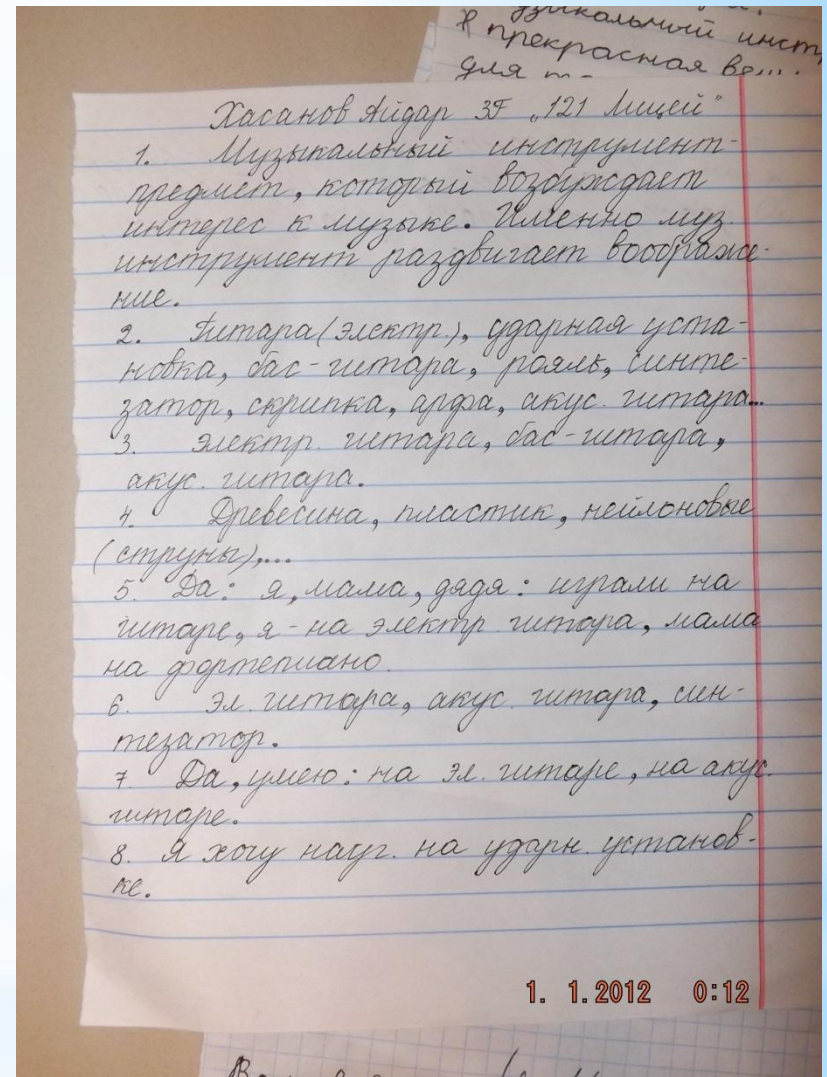 узыкальный инст
прекрасная
для
Хасанов Айдар 3Г „121 Лицей"
1. Музыкальный инструмент-
предмет, который возбуждает
интерес к музыке. Именно муз.
инструмент раздвигает воображе-
ние.
2. Гитара (электр.), ударная уста-
новка, бас-гитара, рояль, синте-
затор, скрипка, арфа, акус. гитара...
3. Электр. гитара, бас-гитара,
акус. гитара.
4. Древесина, пластик, нейлоновые
(струны),...
5. Да: я, мама, дядя: играли на
гитаре, я-на электр. гитара, мама
на фортепиано.
6. Эл. гитара, акус. гитара, син-
тезатор.
7. Да, умею: на эл. гитаре, на акус.
гитаре.
8. Я хочу науч. на ударн. установ-
ке.
1. 1.2012 0:12